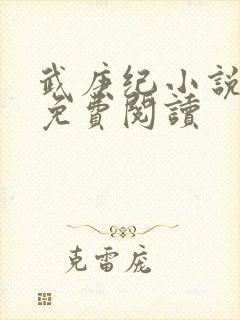 武庚纪小說
免費閱讀
克雷庞